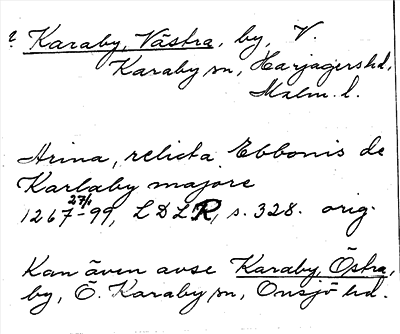 ? Karaby, Västra, by, V.
Karaby sn, Harjagers hd,
Malm. l.
Arina, relicta Ebbonis de
Karlaby majore
1267 27/1 - 99, LDLR, s. 328. orig.
Kan även avse Karaby, Östra,
by, Ö. Karaby sn, Onsjö hd.